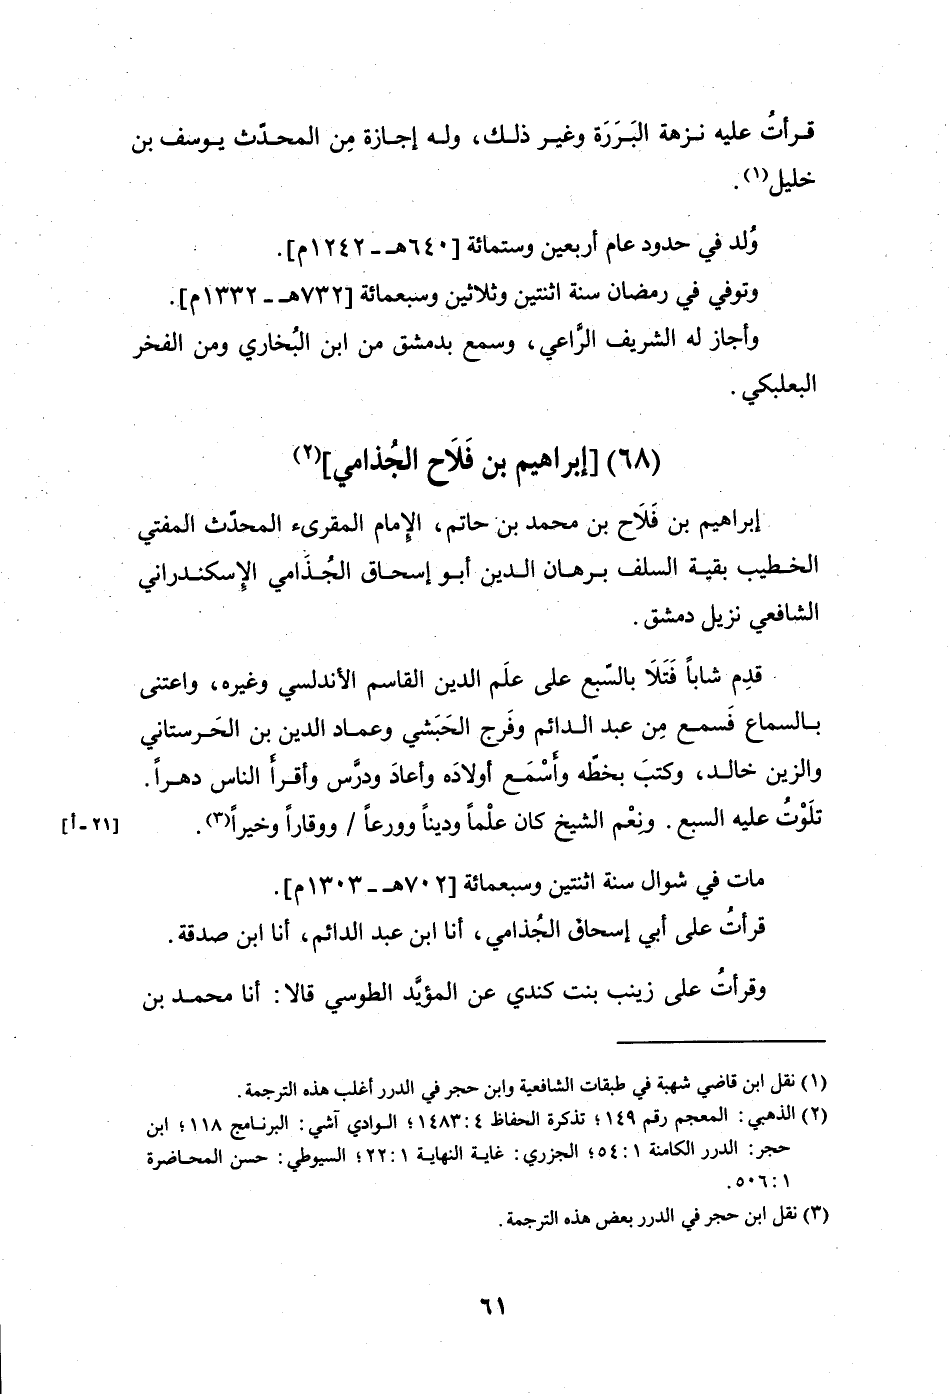 قرأتُ عليه نزهة البَرَرَة وغير ذلك، وله إجازة مِن المحدّث يوسف بن
خليل(١).
وُلد في حدود عام أربعين وستمائة [٦٤٠هـ ـ ١٢٤٢م].
وتوفي في رمضان سنة اثنتين وثلاثين وسبعمائة [٧٣٢هـ ـ ١٣٣٢م].
وأجاز له الشريف الرَّاعي، وسمع بدمشق من ابن البُخاري ومن الفخر
البعلبكي.
(٦٨) [إبراهيم بن فَلَاح الجُذامي](٢)
إبراهيم بن فَلَاح بن محمد بن حاتم، الإمام المقرىء المحدّث المفتي
الخطيب بقية السلف برهان الدين أبو إسحاق الجُذَامي الإسكندراني
الشافعي نزيل دمشق.
قدِم شاباً فَتَلَا بالسّبع على علَم الدين القاسم الأندلسي وغيره، واعتنى
بالسماع فَسمع مِن عبد الدائم وفَرج الحَبَشي وعماد الدين بن الحَرستاني
والزين خالد، وكتبَ بخطّه وأَسْمَع أولادَه وأعادَ ودرَّس وأقرأَ الناس دهراً.
تلَوْتُ عليه السبع. ونِعْم الشيخ كان علْماً وديناً وورعاً / ووقاراً وخيراً(٣). [٢١ - أ]
مات في شوال سنة اثنتين وسبعمائة [٧٠٢هـ ـ ١٣٠٣م].
قرأتُ على أبي إسحاق الجُذامي، أنا ابن عبد الدائم، أنا ابن صدقة.
وقرأتُ على زينب بنت كندي عن المؤيَّد الطوسي قالا: أنا محمد بن
(١) نقل ابن قاضي شهبة في طبقات الشافعية وابن حجر في الدرر أغلب هذه الترجمة.
(٢) الذهبي: المعجم رقم ١٤٩؛ تذكرة الحفاظ ٤:١٤٨٣؛ الوادي آشي: البرنامج ١١٨؛ ابن
حجر: الدرر الكامنة ١:٥٤؛ الجزري: غاية النهاية ١:٢٢؛ السيوطي: حسن المحاضرة
١:٥٠٦.
(٣) نقل ابن حجر في الدرر بعض هذه الترجمة.
٦١